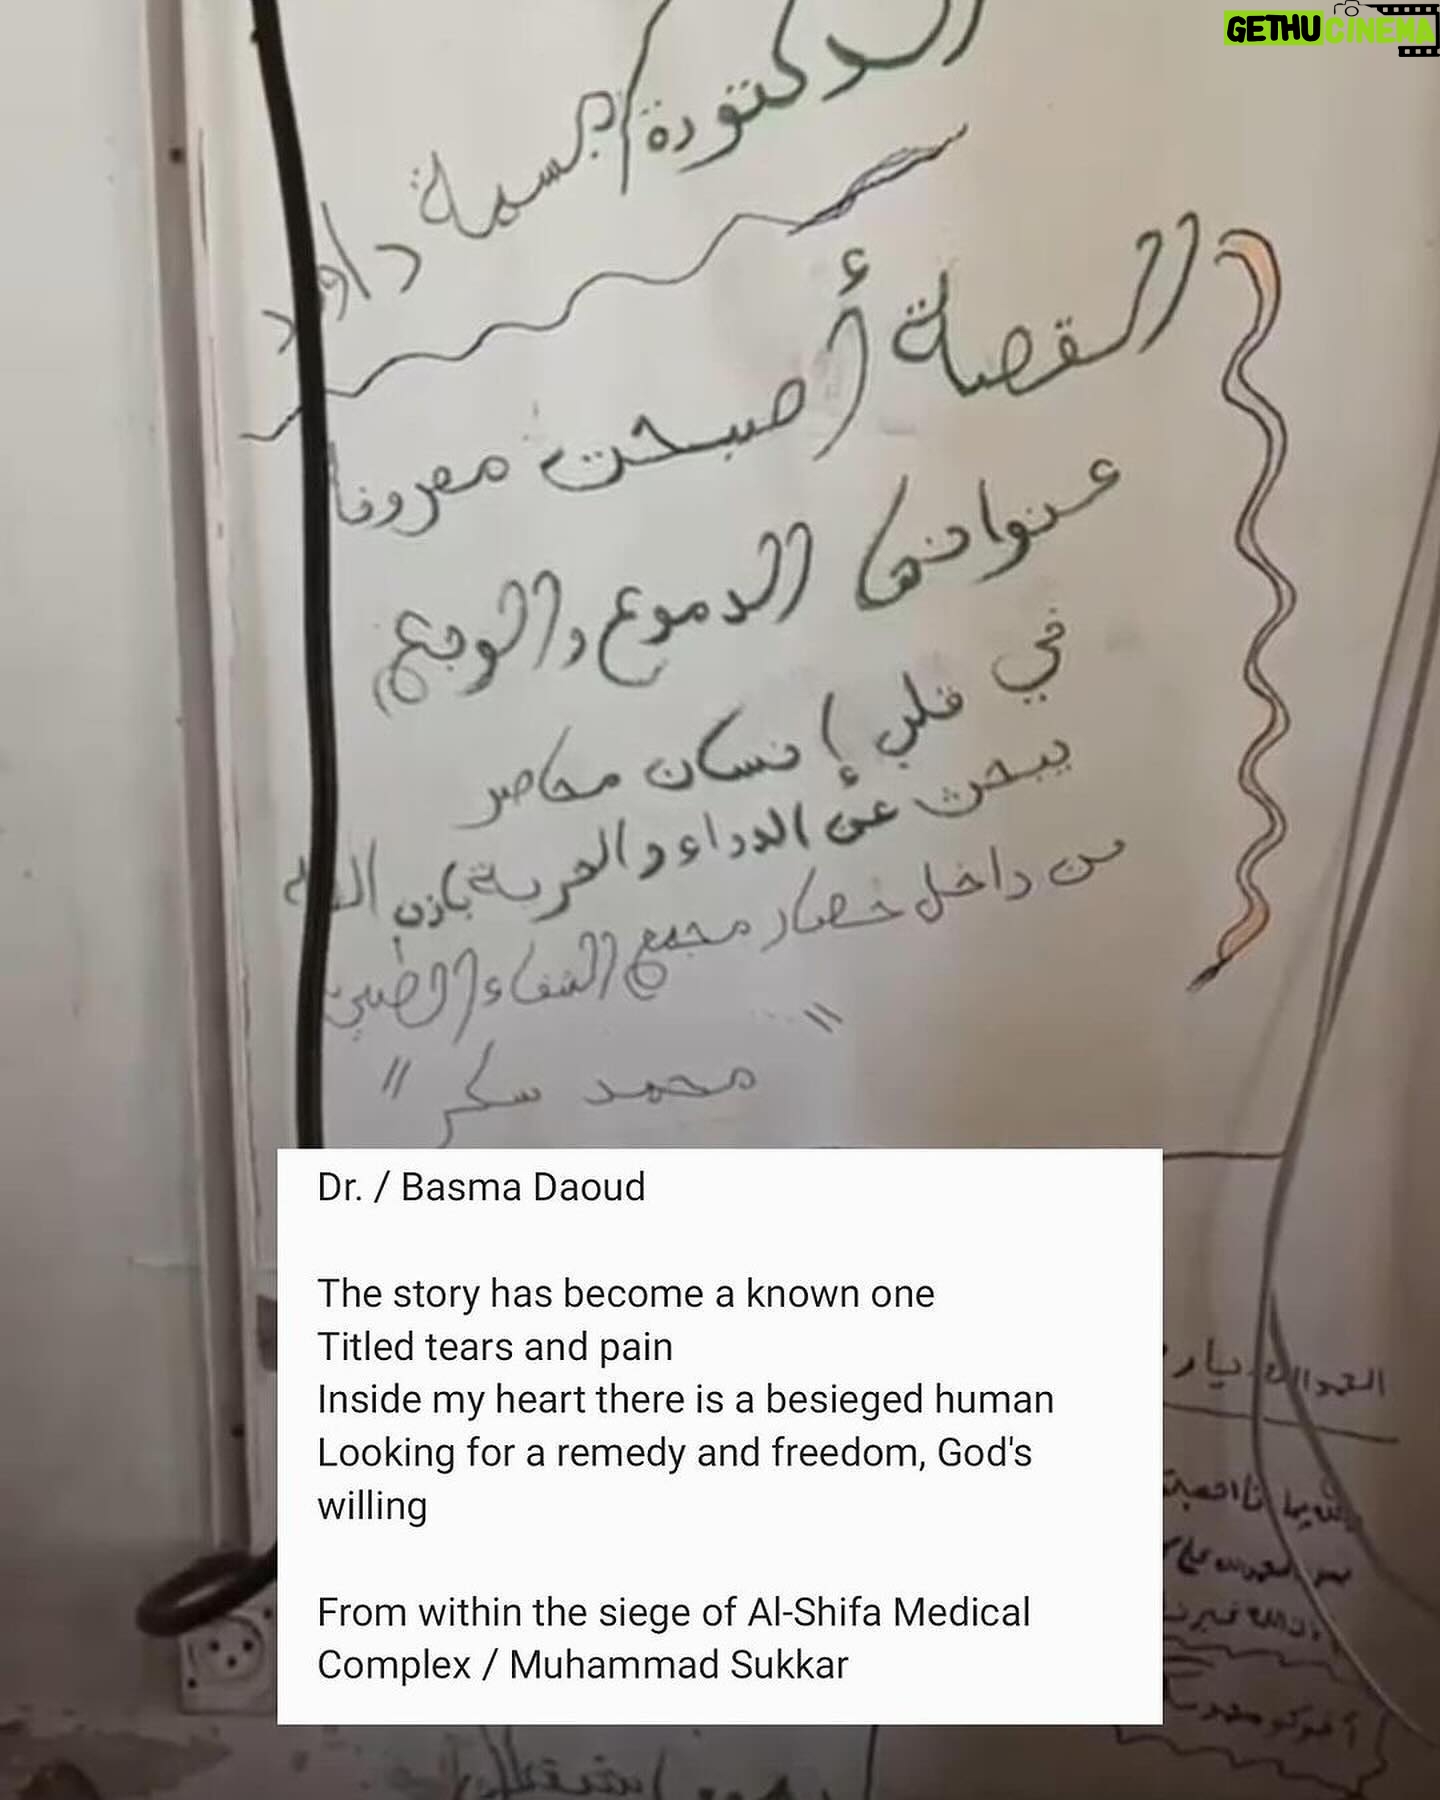 GETHUCINEMA
الدكتورة / بسمة داود
القصة أصبحت معروفا
عنوانها الدموع والوجع
في قلب إنسان محاصر
يبحث عن الدواء والحرية بإذن الله
من داخل حصار مجمع الشفاء الطبي
" محمد سكر "
Dr. / Basma Daoud
The story has become a known one
Titled tears and pain
Inside my heart there is a besieged human
Looking for a remedy and freedom, God's
willing
From within the siege of Al-Shifa Medical
Complex / Muhammad Sukkar